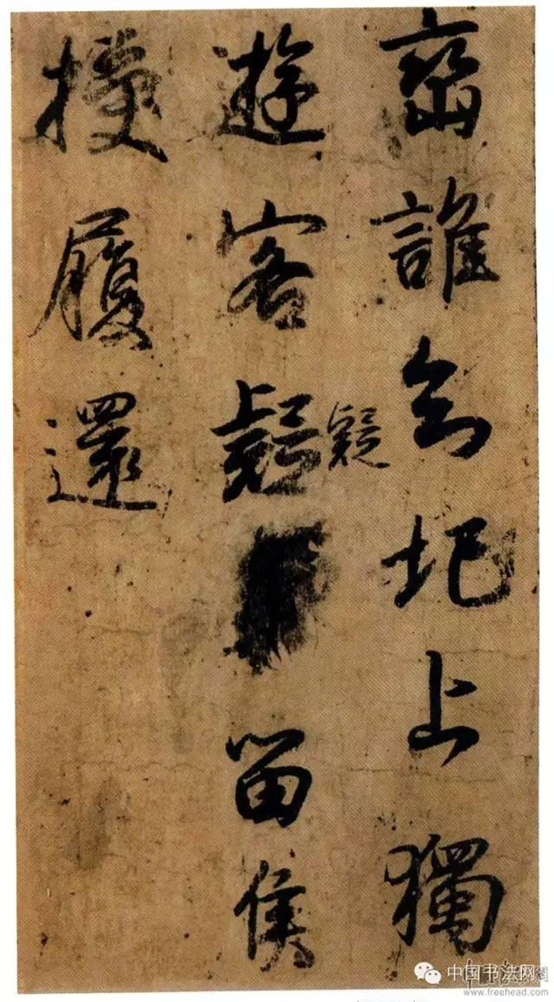 峦誰知圯上獨
遊客疑留侯
疑
授履還
中国书法网
www.freehead.com